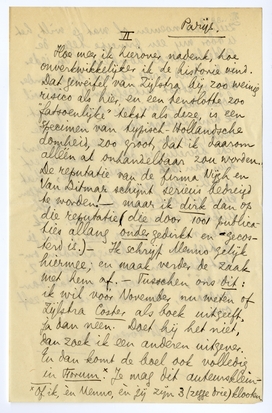 Parijs.
II
Hoe meer ik hierover nadenk, hoe
onverkwikkelijker ik de historie vind.
Dat geweifel van Zijlstra bij zoo weinig
risico als hier, en een tenslotte zoo
"fatsoenlijke" tekst als deze, is een
specimen van typisch-Hollandsche
domheid, zoo groot, dat ik daarom
alléén al onhandelbaar zou worden.
De reputatie van de firma Nijgh en
Van Ditmar schijnt serieus bedreigd
te worden! — maar ik dank dan op
die reputatie (die door 1001 publica-
ties allang ondergekunt en
is.) — Ik schrijf Menno gelijk
hiermee; en maak verder de zaak
met hem af. — Tusschen ons dit:
ik wil voor November nu weten of
Zijlstra Coster als boek uitgeeft,
ja dan neen. Doet hij het niet,
dan zoek ik een anderen uitgever.
En dan komt de boel ook volledig
in Forum.* Je mag dit auteursklein-
* Of ik, en Menno, en jij zijn 3 (zegge drie) klooten